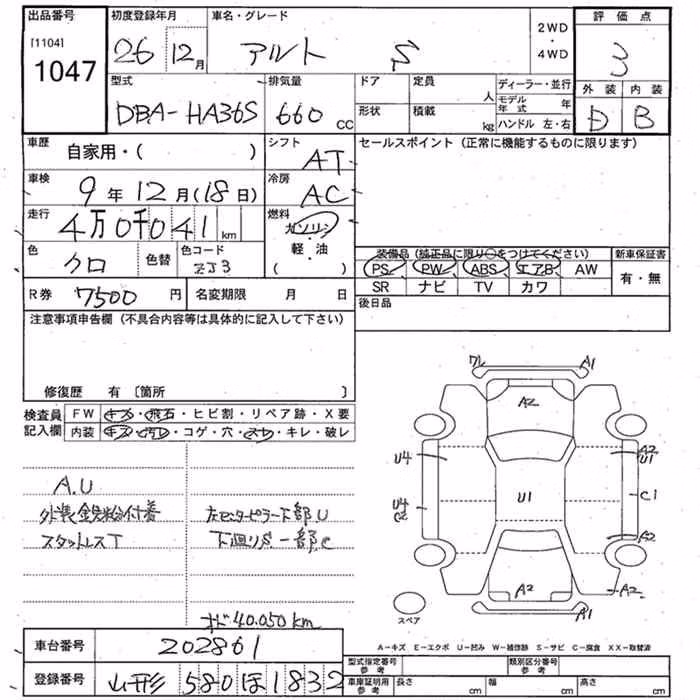 出品番号
[1104]
1047
初度登録年月
26 12月
車名・グレード
アルト S
2WD
・
4WD
評価点
3
外装 内装
D B
型式
DBA-HA36S
排気量
660 CC
ドア
定員
人
形状
積載
kg
ディーラー・並行
モデル年式 年
ハンドル 左・右
車歴
自家用・( )
シフト
AT
車検
9年12月(18日)
冷房
AC
走行
4万0千041 km
燃料
ガソリン
・
軽・油
( )
色
クロ
色替
色コード
ZJ3
R券
7500円
名変期限 月 日
セールスポイント (正常に機能するものに限ります)
装備品 (純正品に限り○をつけてください)
PS PW ABS エアB AW
SR ナビ TV カワ
新車保証書
有・無
後日品
注意事項申告欄 (不具合内容等は具体的に記入して下さい)
修復歴 有 〔箇所 〕
検査員記入欄
FW キズ・飛石・ヒビ割・リペア跡・X要
内装 キズ・汚レ・コゲ・穴・スレ・キレ・破レ
A.U
外装鉄粉付着
スタットレスT
左センターピラー下部U
下廻りS一部C
オド40,050km
ワレ A1
A2
U4
A2
U1
U1
U4
C2
C1
A2
A2
A2
A1
スペア
A-キズ E-エクボ U-凹み W-補修跡 S-サビ C-腐食 XX-取替済
車台番号
202861
登録番号
山形 580 ほ 1832
型式指定番号
参考
類別区分番号
参考
車庫証明用
参考
長さ cm
幅 cm
高さ cm